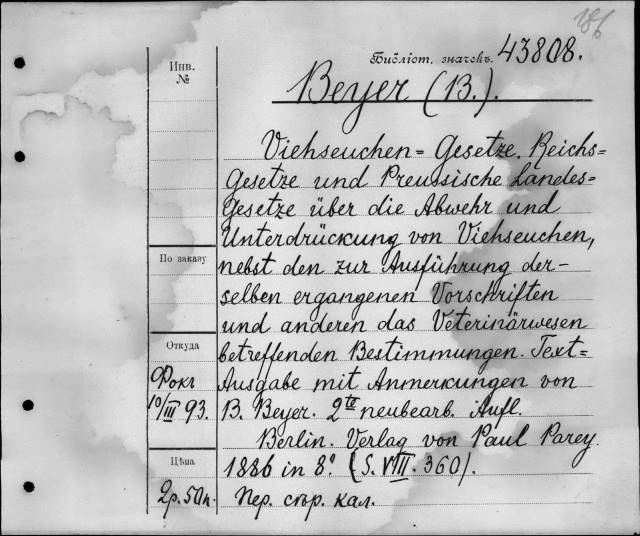 186
Библіот. значекъ. 43808.
Инв.
№
Beyer (B.).
Viehseuchen=Gesetze. Reichs=
Gesetze und Preussische Landes=
Gesetze über die Abwehr und
Unterdrückung von Viehseuchen,
По заказу
nebst den zur Ausführung der-
selben ergangenen Vorschriften
und anderen das Veterinärwesen
Откуда
betreffenden Bestimmungen. Text=
Фокъ
Ausgabe mit Anmerkungen von
10/III 93.
B. Beyer. 2te neubearb. Aufl.
Berlin. Verlag von Paul Parey.
Цѣна
1886 in 8°. (S. VIII. 360).
2р. 50к.
Пер. скор. кал.